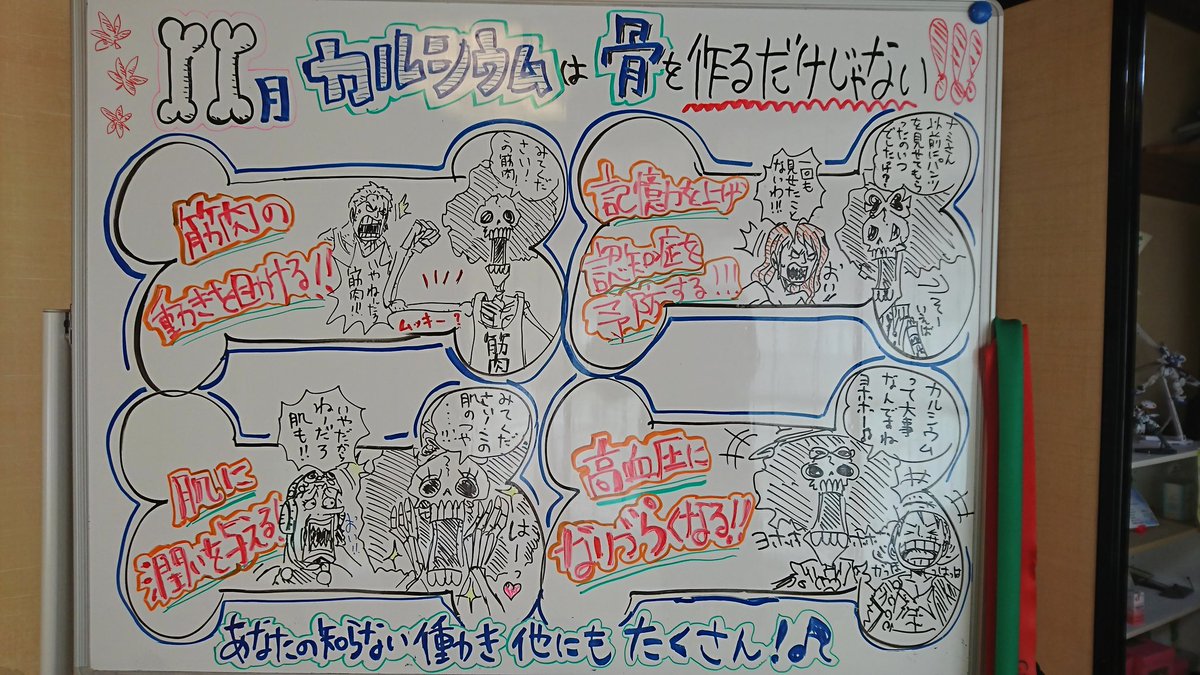 11月 カルシウムは 骨を作るだけじゃない!!!
筋肉の
動きを助ける!!
みてくだ
さい!
この筋肉
やねーだろ
筋肉!!!
ムッキー?
筋肉
記憶力を上げ
認知症を
予防する!!!
ナミさん
以前にパンツ
を見せてもら
ったのいつ
でしたっけ?
一回も
見せたこと
ないわ!!!
おい
肌に
潤いを与える!
みてくだ
さい!この
肌のつや
いやだから
ねーだろ
肌も!!
はー
高血圧に
なりづらくなる!!
カルシウム
って大事
なんですね
ヨホホー♪
ヨホホ
ホホ
あなたの知らない働き 他にも たくさん!♪